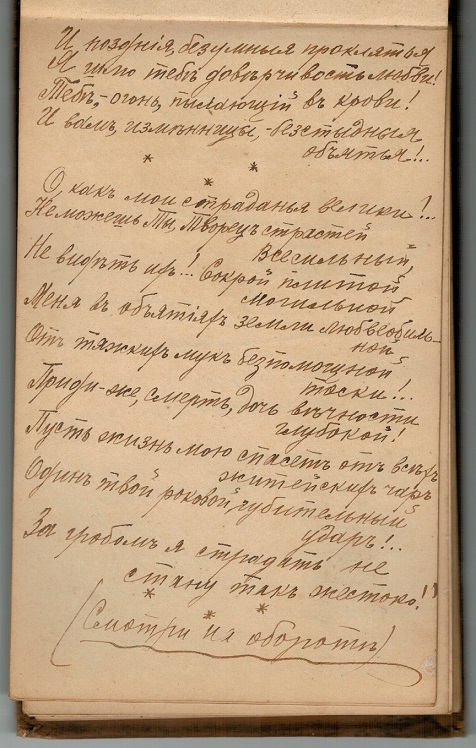 И позднія, безумныя проклятья
Я шлю тебѣ довѣрчивость любви!
Тебѣ,- огонь, пылающій въ крови!
И вамъ, измѣнницы, - безстыдныя
объятья!..
* * *
О, какъ мои страданья велики!..
Не можешь Ты, Творецъ страстей
Всесильный,
Не видѣть ихъ!.. Сокрой плитой
могильной
Меня въ объятіяхъ земли любвеобиль-
ной
Отъ тяжкихъ мукъ безпомощной
тоски!..
Приди-же, смерть, дочь вѣчности
глубокой!
Пусть жизнь мою спасетъ отъ всѣхъ
житейскихъ чаръ
Одинъ твой роковой, губительный
ударъ!..
За гробомъ я страдать не
стану такъ жестоко!"
* * *
(Смотри на оборотѣ)